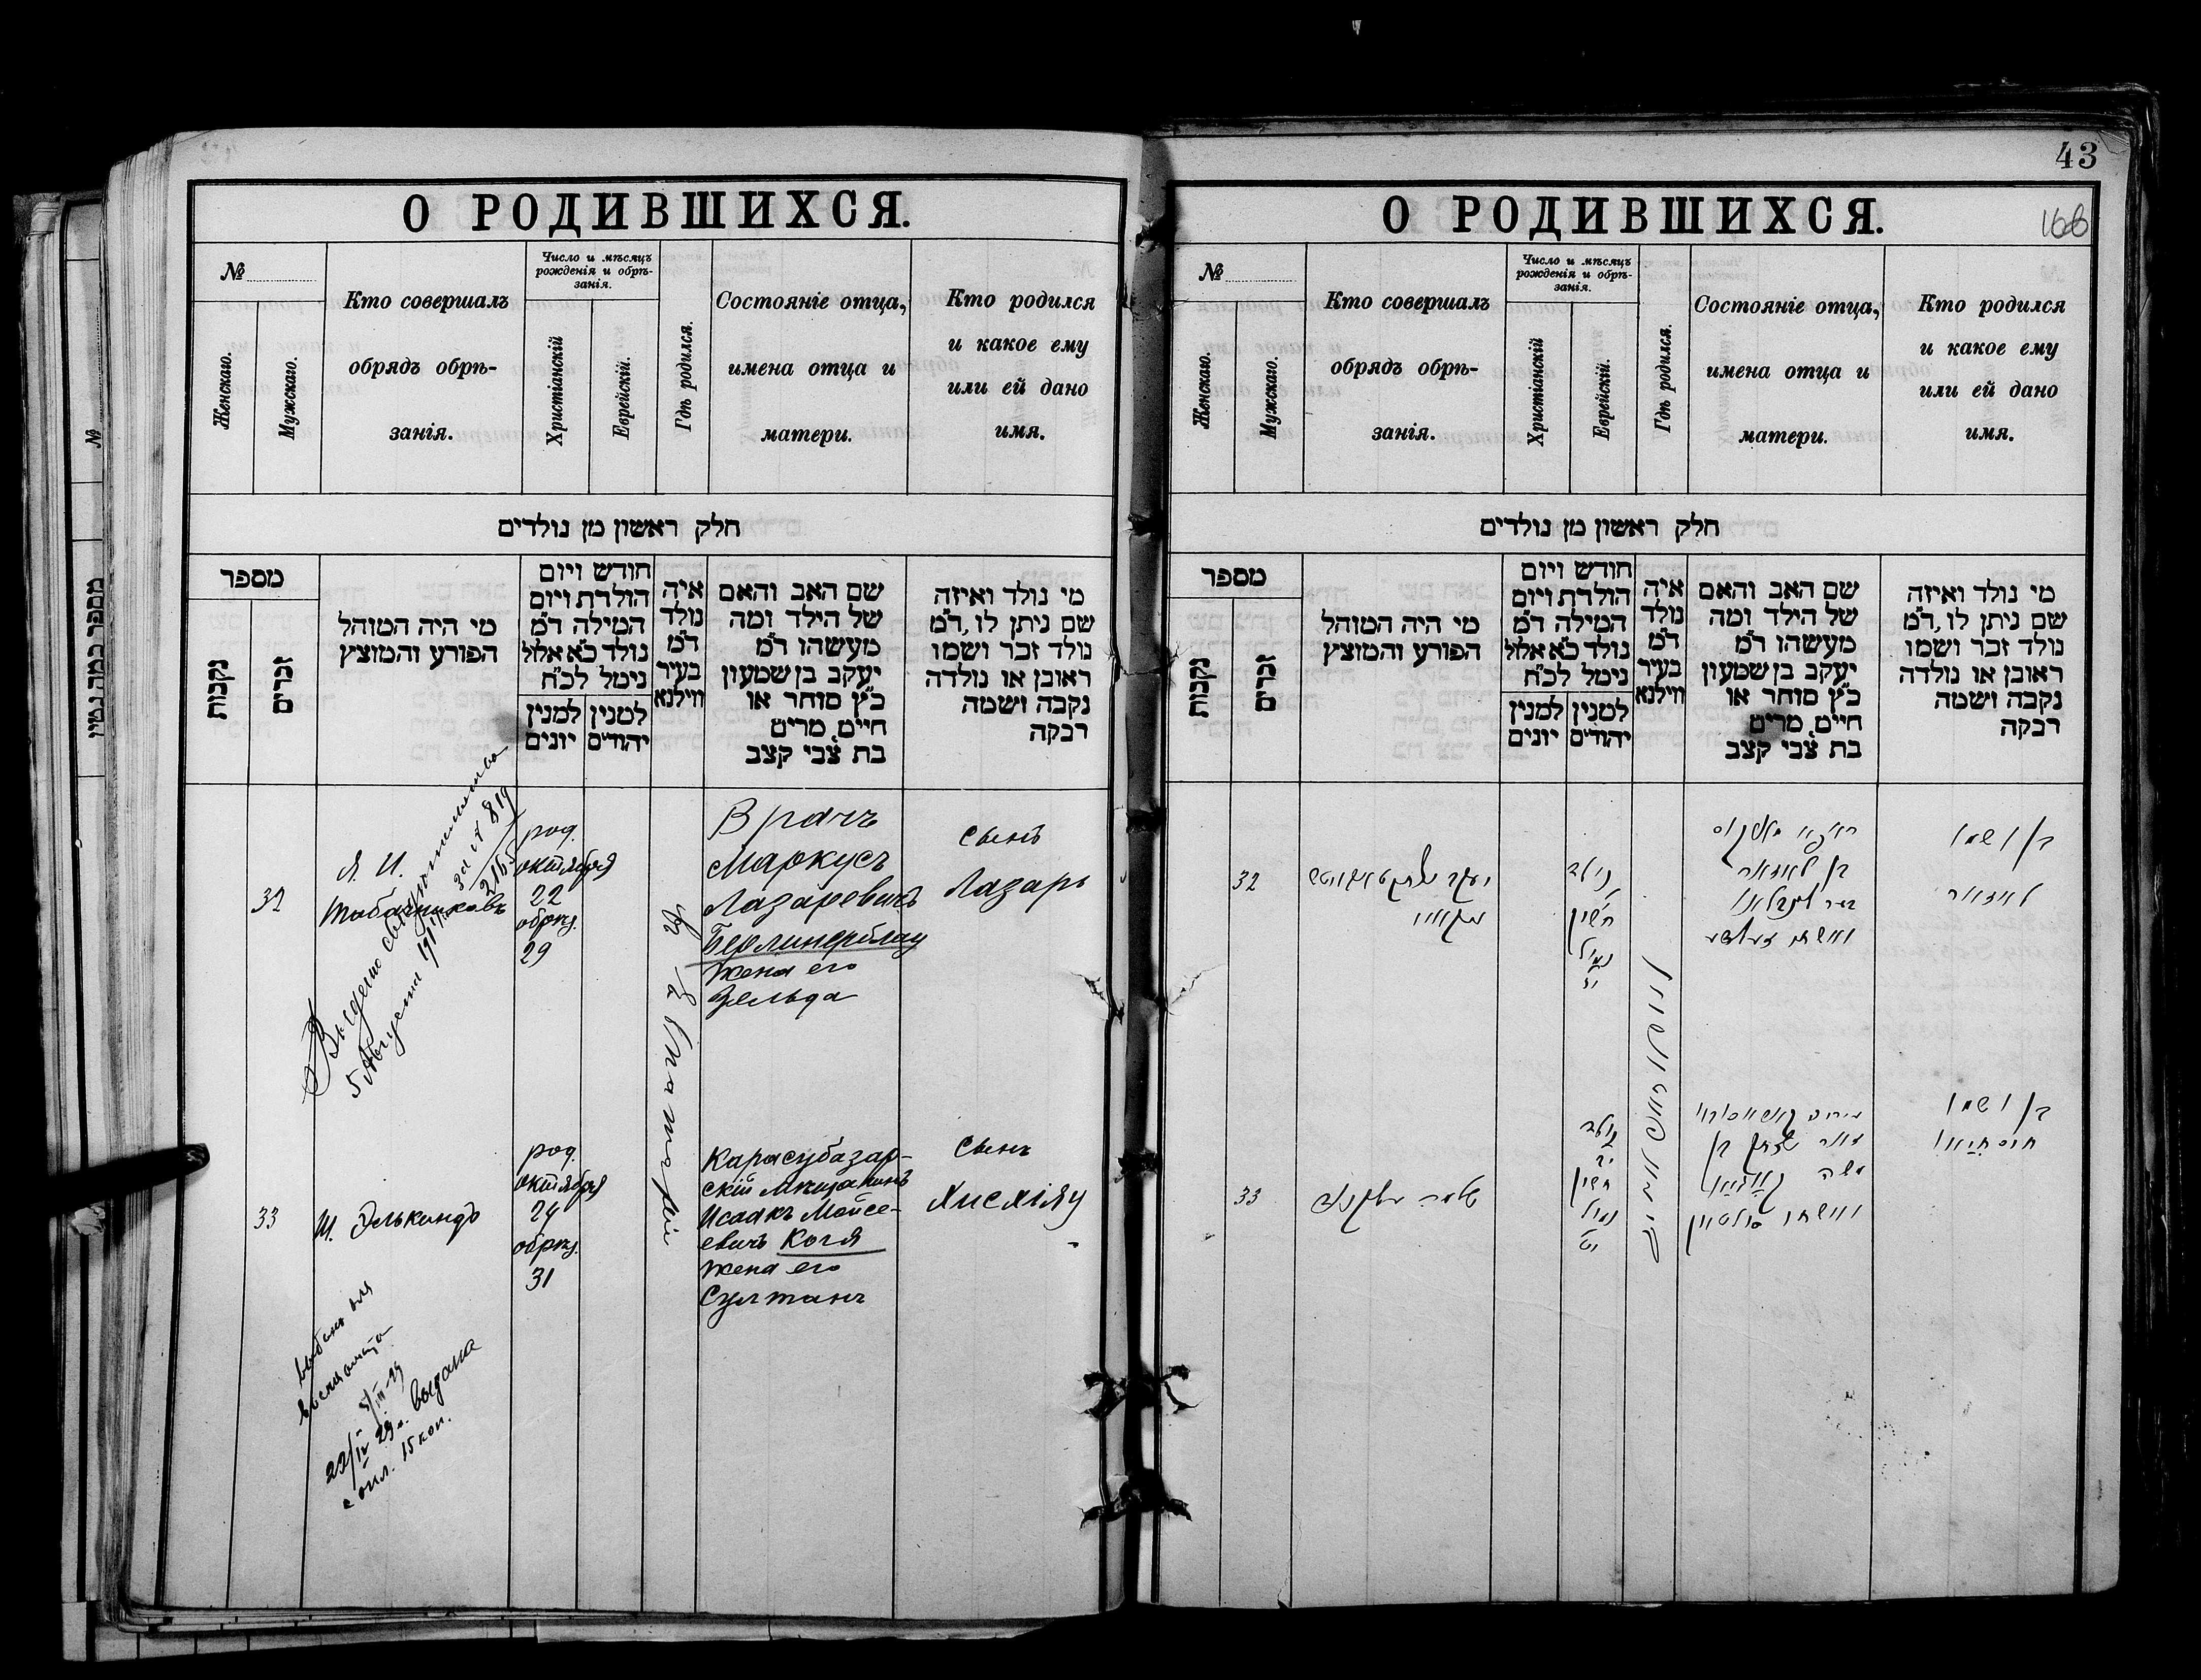 О РОДИВШИХСЯ.
№
Женскаго.
Мужскаго.
Кто совершалъ
обрядъ обрѣ-
занія.
Число и мѣсяцъ
рожденія и обрѣ-
занія.
Христіанскій
Еврейскій.
Гдѣ родился.
Состояніе отца,
имена отца и
матери.
Кто родился
и какое ему
или ей дано
имя.
חלק ראשון מן נולדים
מספר
נקבות
זכרים
מי היה המוהל
הפורע והמוצץ
חודש ויום
הולדת ויום
המילה ד״מ
נולד כ״א אלול
נימל לכ״ח
למנין
יונים
למנין
יהודים
איה
נולד
ד״מ
בעיר
ווילנא
שם האב והאם
של הילד ומה
מעשהו ד״מ
יעקב בן שמעון
כ״ץ סוחר או
חיים, מרים
בת צבי קצב
מי נולד ואיזה
שם ניתן לו, ד״מ
נולד זכר ושמו
ראובן או נולדה
נקבה ושמה
רבקה
32
Я. И.
Табачниковъ
род.
октября
22
обрѣз.
29
Врачъ
Маркусъ
Лазаревичъ
Берлинерблау
жена его
Зельда
сынъ
Лазарь
Выдено свидѣтельство
5 Августа 191
за № 819
2165
въ Евпаторіи
33
Ш. Элькиндъ
род.
октября
24
обрѣз.
31
Карасубазар-
скій мѣщанинъ
Исаакъ Мойсе-
евичъ Когя
жена его
Султанъ
сынъ
Хисхіяу
22/IV 29 г. выдана
с опл. 15 коп.
43
О РОДИВШИХСЯ.
166
№
Женскаго.
Мужскаго.
Кто совершалъ
обрядъ обрѣ-
занія.
Число и мѣсяцъ
рожденія и обрѣ-
занія.
Христіанскій
Еврейскій.
Гдѣ родился.
Состояніе отца,
имена отца и
матери.
Кто родился
и какое ему
или ей дано
имя.
חלק ראשון מן נולדים
מספר
נקבות
זכרים
מי היה המוהל
הפורע והמוצץ
חודש ויום
הולדת ויום
המילה ד״מ
נולד כ״א אלול
נימל לכ״ח
למנין
יונים
למנין
יהודים
איה
נולד
ד״מ
בעיר
ווילנא
שם האב והאם
של הילד ומה
מעשהו ד״מ
יעקב בן שמעון
כ״ץ סוחר או
חיים, מרים
בת צבי קצב
מי נולד ואיזה
שם ניתן לו, ד״מ
נולד זכר ושמו
ראובן או נולדה
נקבה ושמה
רבקה
32
נולד
חשון
נמול
בן לאזאר
ואשתו
בן ושמו
לאזאר
33
נולד
חשון
נמול
יצחק בן
משה
ואשתו סולטאן
בן ושמו